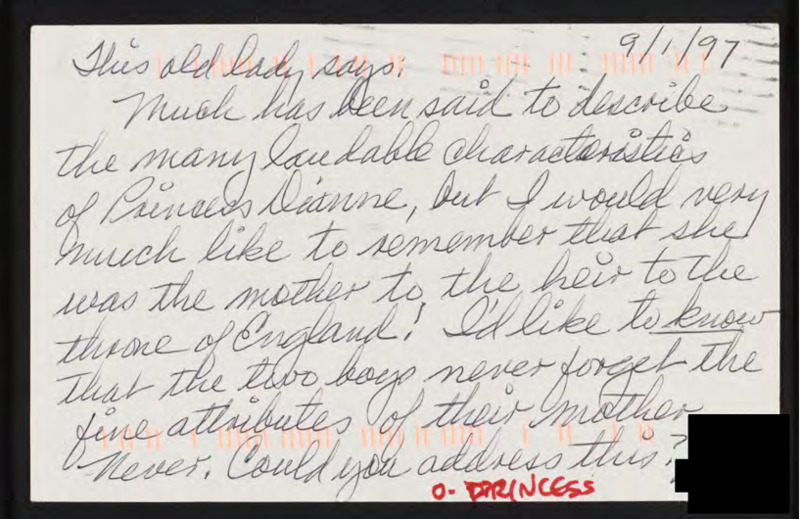 9/1/97
This old lady says:
Much has been said to describe
the many laudable characteristics
of Princess Dianne, but I would very
much like to remember that she
was the mother to the heir to the
throne of England! I'd like to know
that the two boys never forget the
fine attributes of their mother
Never. Could you address this?
O- PRINCESS